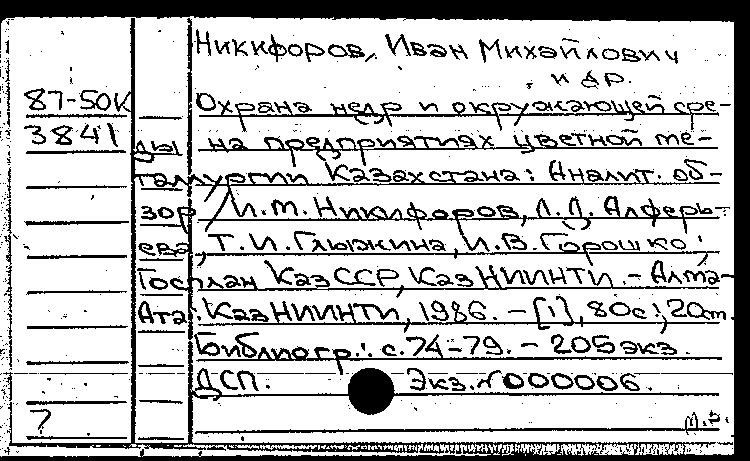 Никифоров, Иван Михайлович
и др.
87-50К
3841
Охрана недр и окружающей сре-
ды на предприятиях цветной ме-
таллургии Казахстана: Аналит. об-
зор / И.М. Никифоров, Л.Д. Алферь-
ева, Т.И. Глыжкина, И.В. Горошко;
Госплан КазССР, КазНИИНТИ. - Алма-
Ата: КазНИИНТИ, 1986. - [1], 80с.; 20см.
Библиогр.: с.74-79. - 205 экз.
ДСП. Экз. № 000006.
?